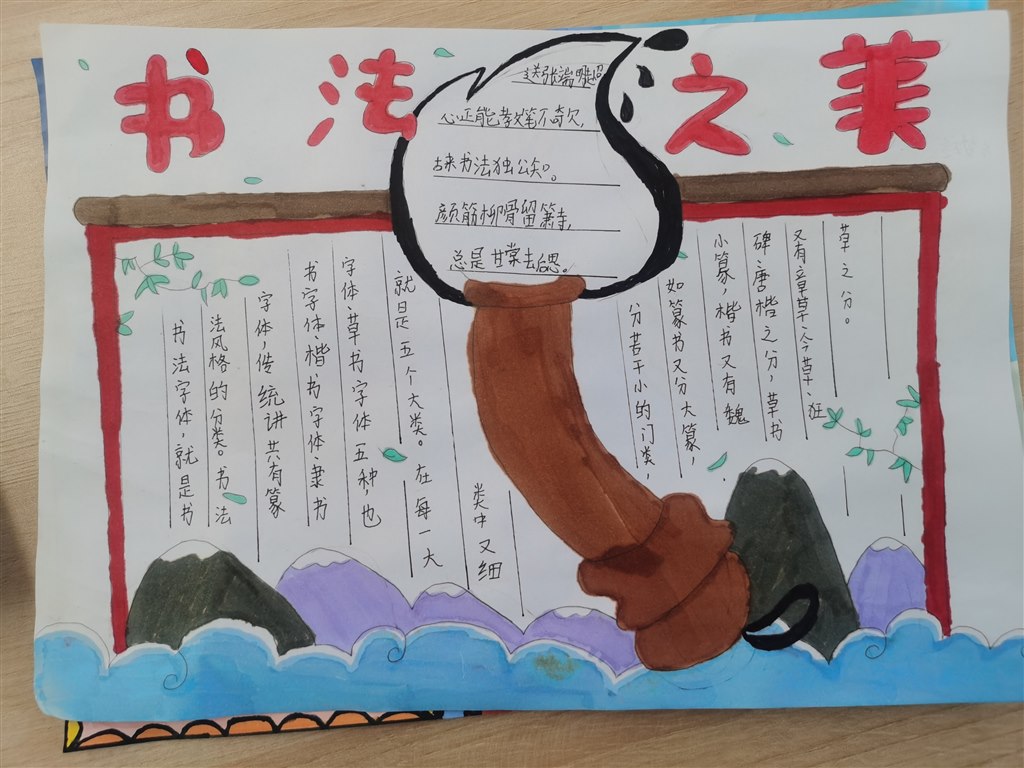 书法之美
送张端
心正能教笔不奇欠,
古来书法独公。
颜筋柳骨留箫寺,
总是甘棠去后思。
书法字体,就是书
法风格的分类。书法
字体,传统讲共有篆
书字体、楷书字体、隶书
字体、草书字体五种,也
就是五个大类。在每一大
类中又细
分若干小的门类,
如篆书又分大篆、
小篆,楷书又有魏
碑、唐楷之分,草书
又有章草、今草、狂
草之分。